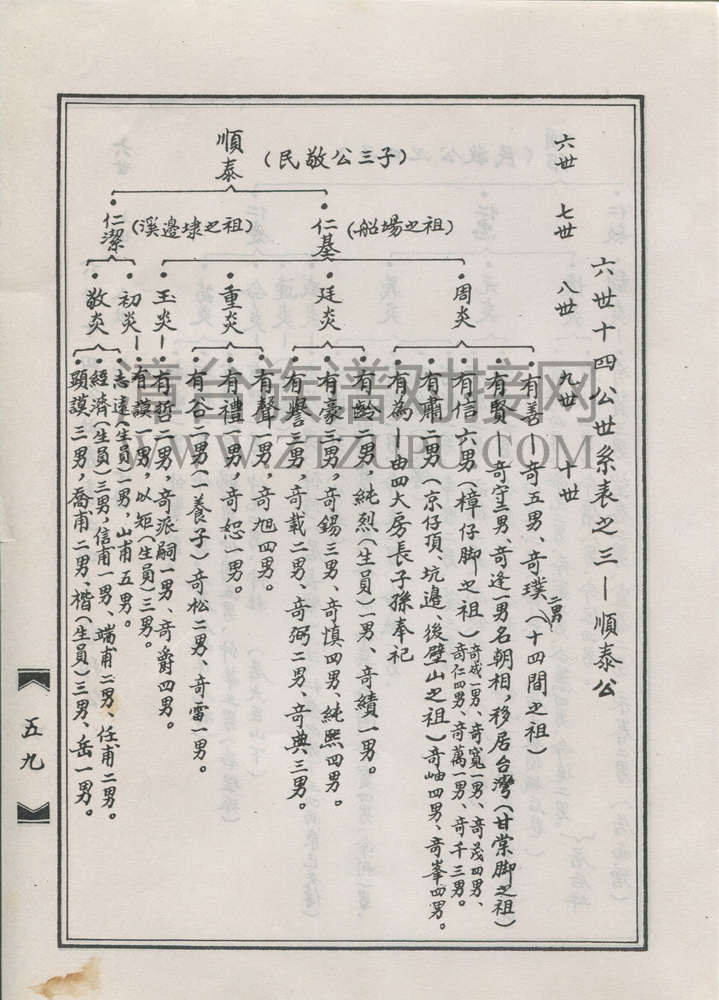 六世十四公世系表之三—順泰公
六世 七世 八世 九世 十世
順泰(民敬公三子)
仁基(船場之祖)
仁潔(溪邊埭之祖)
周炎
廷炎
重炎
玉炎
初炎
敬炎
有善—奇五男、奇璞二男(十四間之祖)
有賢—奇宝男、奇逢一男名朝相,移居台灣(甘棠脚之祖)
有信六男(樟仔脚之祖)奇成一男、奇寬一男、奇茂四男、奇仁四男、奇萬一男、奇千三男。
有肅二男(京仔頂、坑邊、後壁山之祖)奇岫四男、奇峯四男。
有為—由四大房長子孫奉祀
有齡二男,純烈(生員)一男、奇績一男。
有豪三男,奇錫三男、奇慎四男、純熙四男。
有譽三男,奇載二男、奇弼二男、奇典三男。
有聲一男,奇旭四男。
有禮一男,奇恕一男。
有谷二男(一養子)奇松二男、奇雷一男。
有哲二男,奇派嗣一男、奇爵四男。
有謨一男,以矩(生員)三男。
志遠(生員)一男,山甫五男。
經濟(生員)三男,信甫一男、端甫二男、任甫二男。
顯謨三男,喬甫二男、楷(生員)三男、岳一男。
五九
漳台族譜对接网
WWW.ZTZUPU.COM